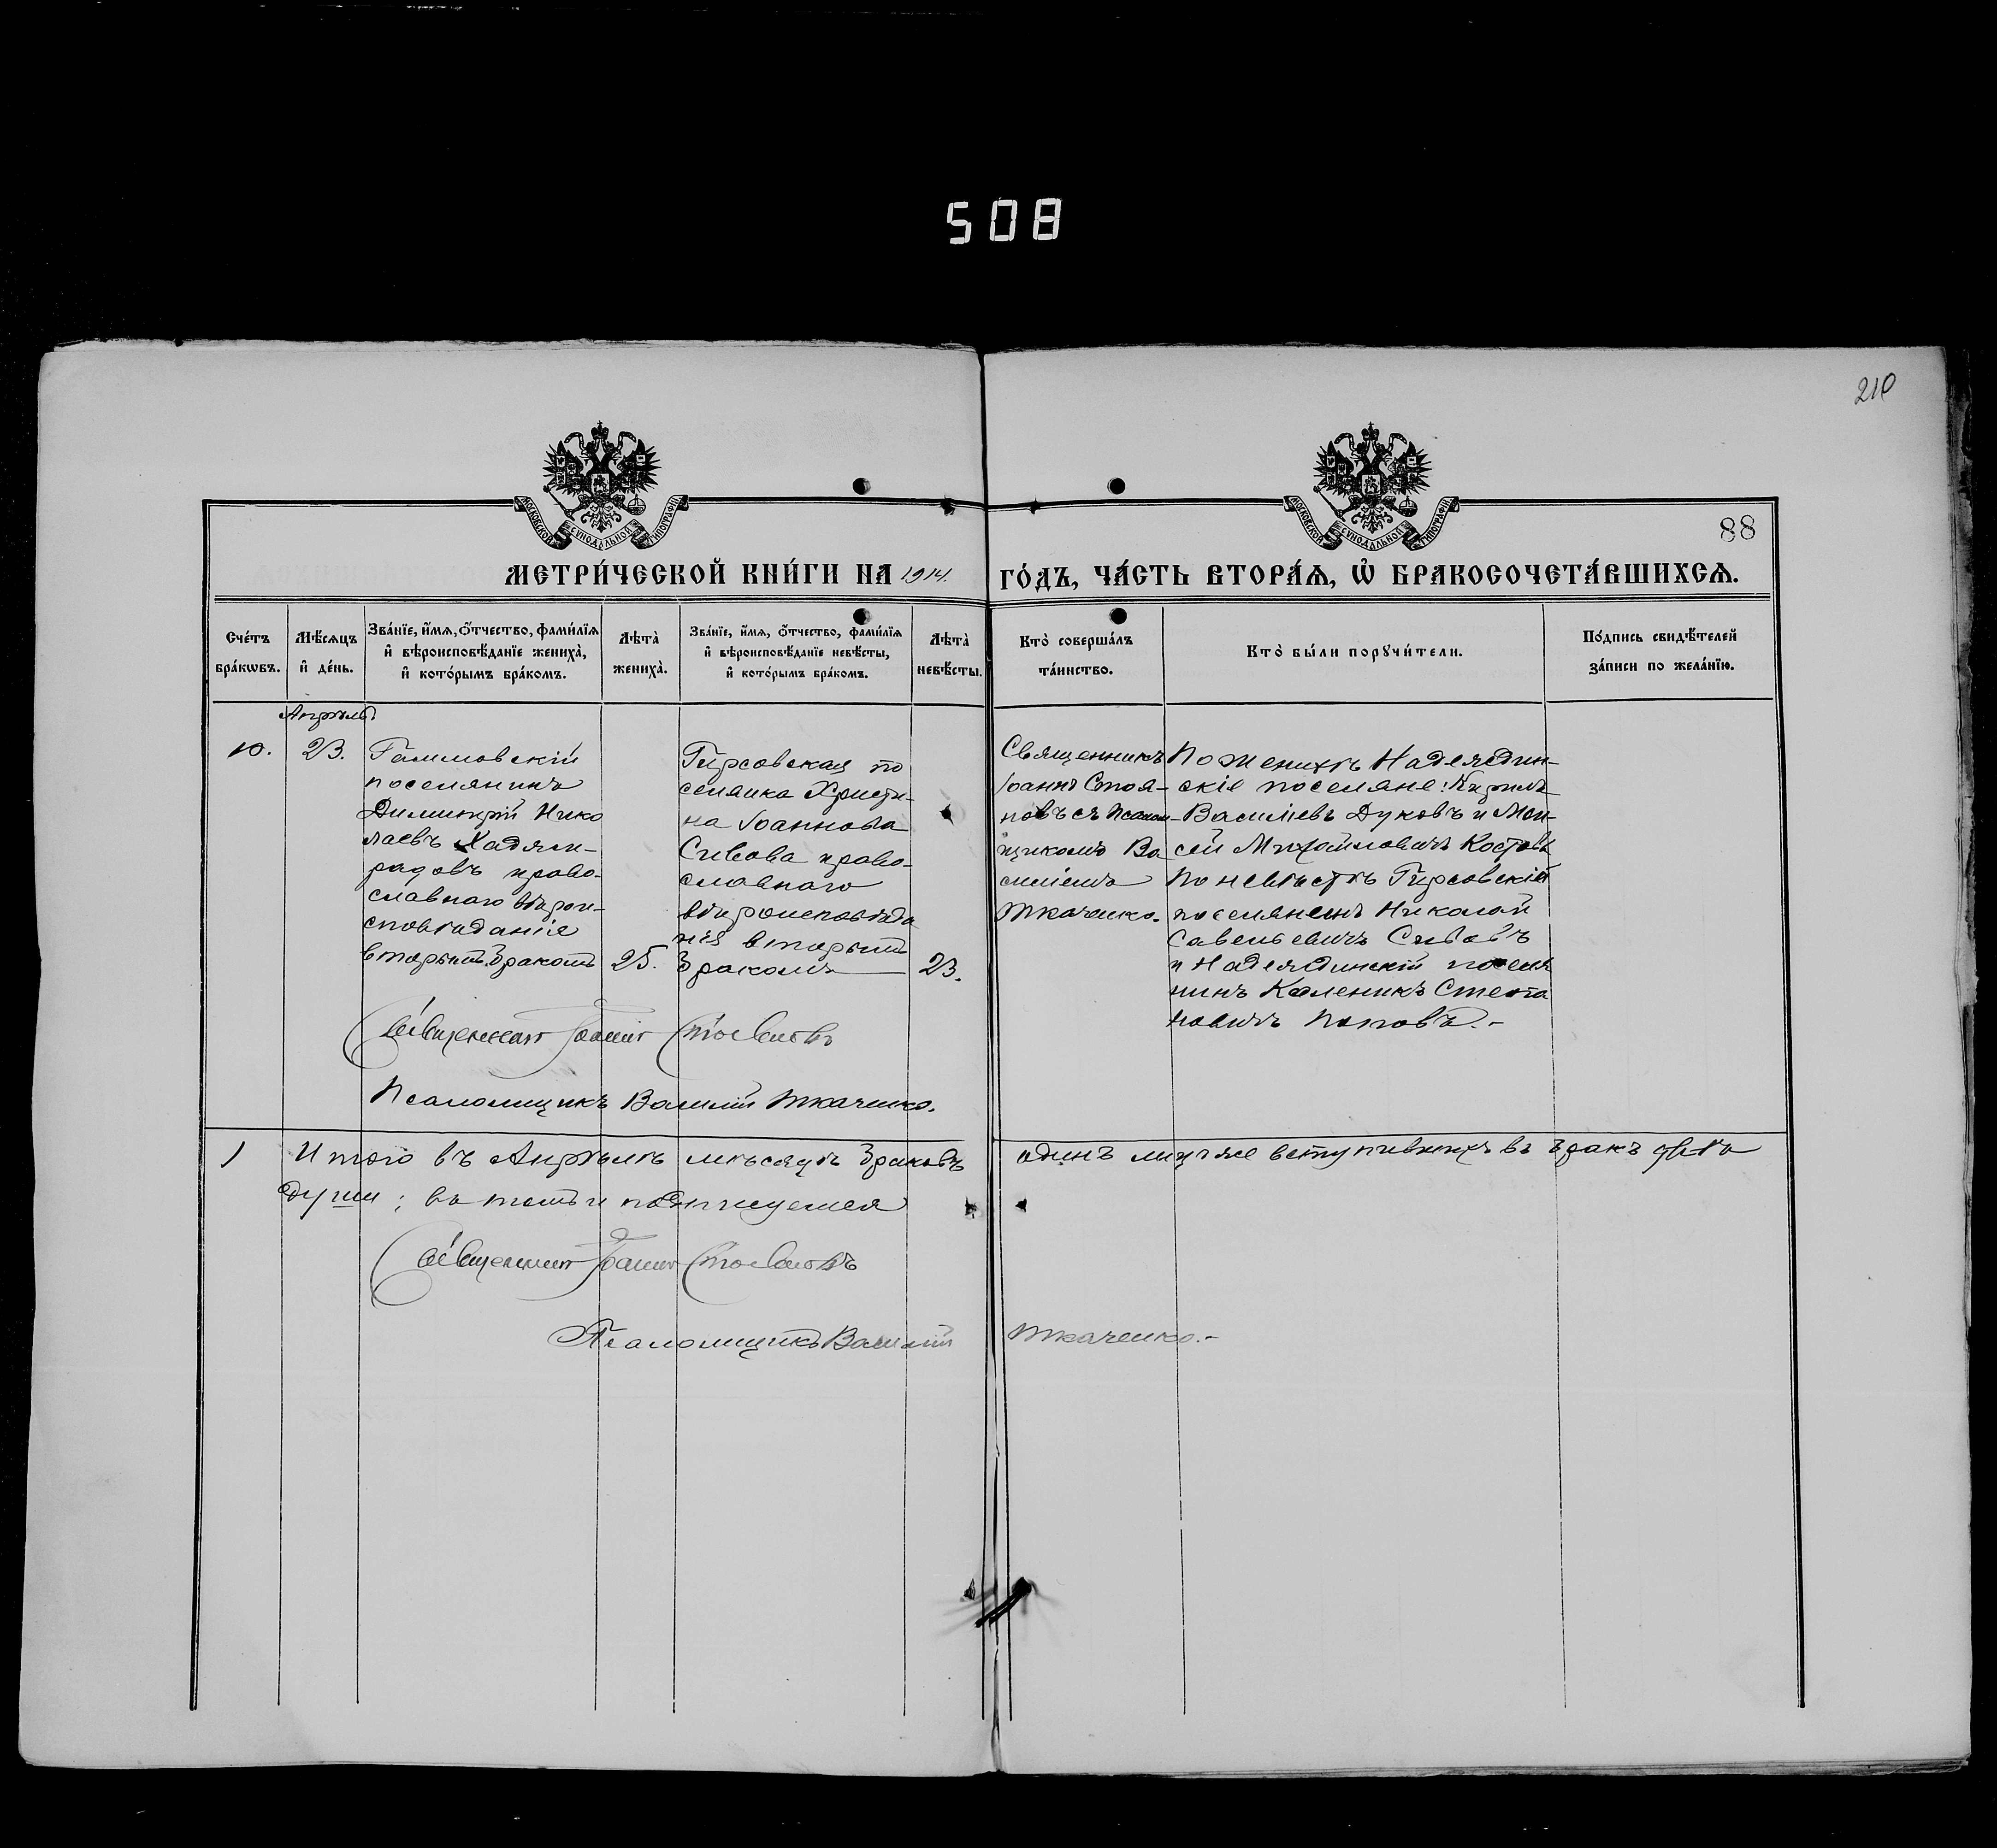 508
210
88
МОСКОВСКОЙ СѴНОДАЛЬНОЙ ТИПОГРАФІИ
МОСКОВСКОЙ СѴНОДАЛЬНОЙ ТИПОГРАФІИ
МЕТРИ́ЧЕСКОЙ КНИ́ГИ НА 1914. ГО́ДЪ, ЧА́СТЬ ВТОРА́Я, Ѡ҆ БРАКОСОЧЕТА́ВШИХСЯ.
Сче́тъ бра́кѡвъ.
Мѣ́сяцъ и҆ де́нь.
Зва́нїе, и҆́мя, ѻ҆́тчество, фами́лїя и҆ вѣроисповѣ́данїе жениха̀, и҆ кото́рымъ бра́комъ.
Лѣта̀ жениха̀.
Зва́нїе, и҆́мя, ѻ҆́тчество, фами́лїя и҆ вѣроисповѣ́данїе невѣ́сты, и҆ кото́рымъ бра́комъ.
Лѣта̀ невѣ́сты.
Кто̀ соверша́лъ та́инство.
Кто̀ бы́ли порꙋчи́тели.
По́дпись свидѣ́телей за́писи по жела́нїю.
Апрѣль
10.
23.
поселянинъ
Димитрій Нико
лаевъ Хаджи-
радовъ право-
славнаго вѣрои-
сповѣданіе
вторымъ бракомъ
25.
Гирсовская по
селянка Христи-
на Іоаннова
Сивова право-
славнаго
вѣроисповѣда
нія вторымъ
бракомъ
23.
Священникъ
Іоаннъ Стоя-
новъ съ псалом-
щикомъ Ва
силіемъ
Ткаченко.
По женихѣ Надеждин-
скіе поселяне: Кирилъ
Василіевъ Дуковъ и Мои-
сей Михайловичъ Костовъ
по невѣстѣ Гирсовскій
поселянинъ Николай
Савельевичъ Сивовъ
и Надеждинскій поселя
нинъ Каленикъ Степа
новичъ Поповъ.-
Священникъ Іоаннъ Стояновъ
Псаломщикъ Василій Ткаченко.
1 Итого въ Апрѣлѣ мѣсяцѣ браковъ одинъ лицъ же вступившихъ въ бракъ двѣ
души; въ томъ и подпишуемся
Священникъ Іоаннъ Стояновъ
Псаломщикъ Василій Ткаченко.-